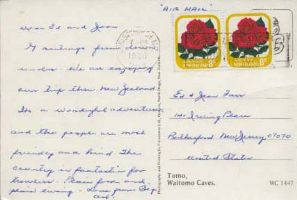 "AIR MAIL"
Dear Ed and Jean
Greetings from down
under. We are enjoying
our trip thru New Zealand.
Its a wonderful adventure
and the people are most
friendly and kind. The
country is fantastic for
flowers. Fine food and
Love from
Ed & Jean
141 Irving Place
Rutherford New Jersey 07070
United States
Tomo,
Waitomo Caves.
WC 1447